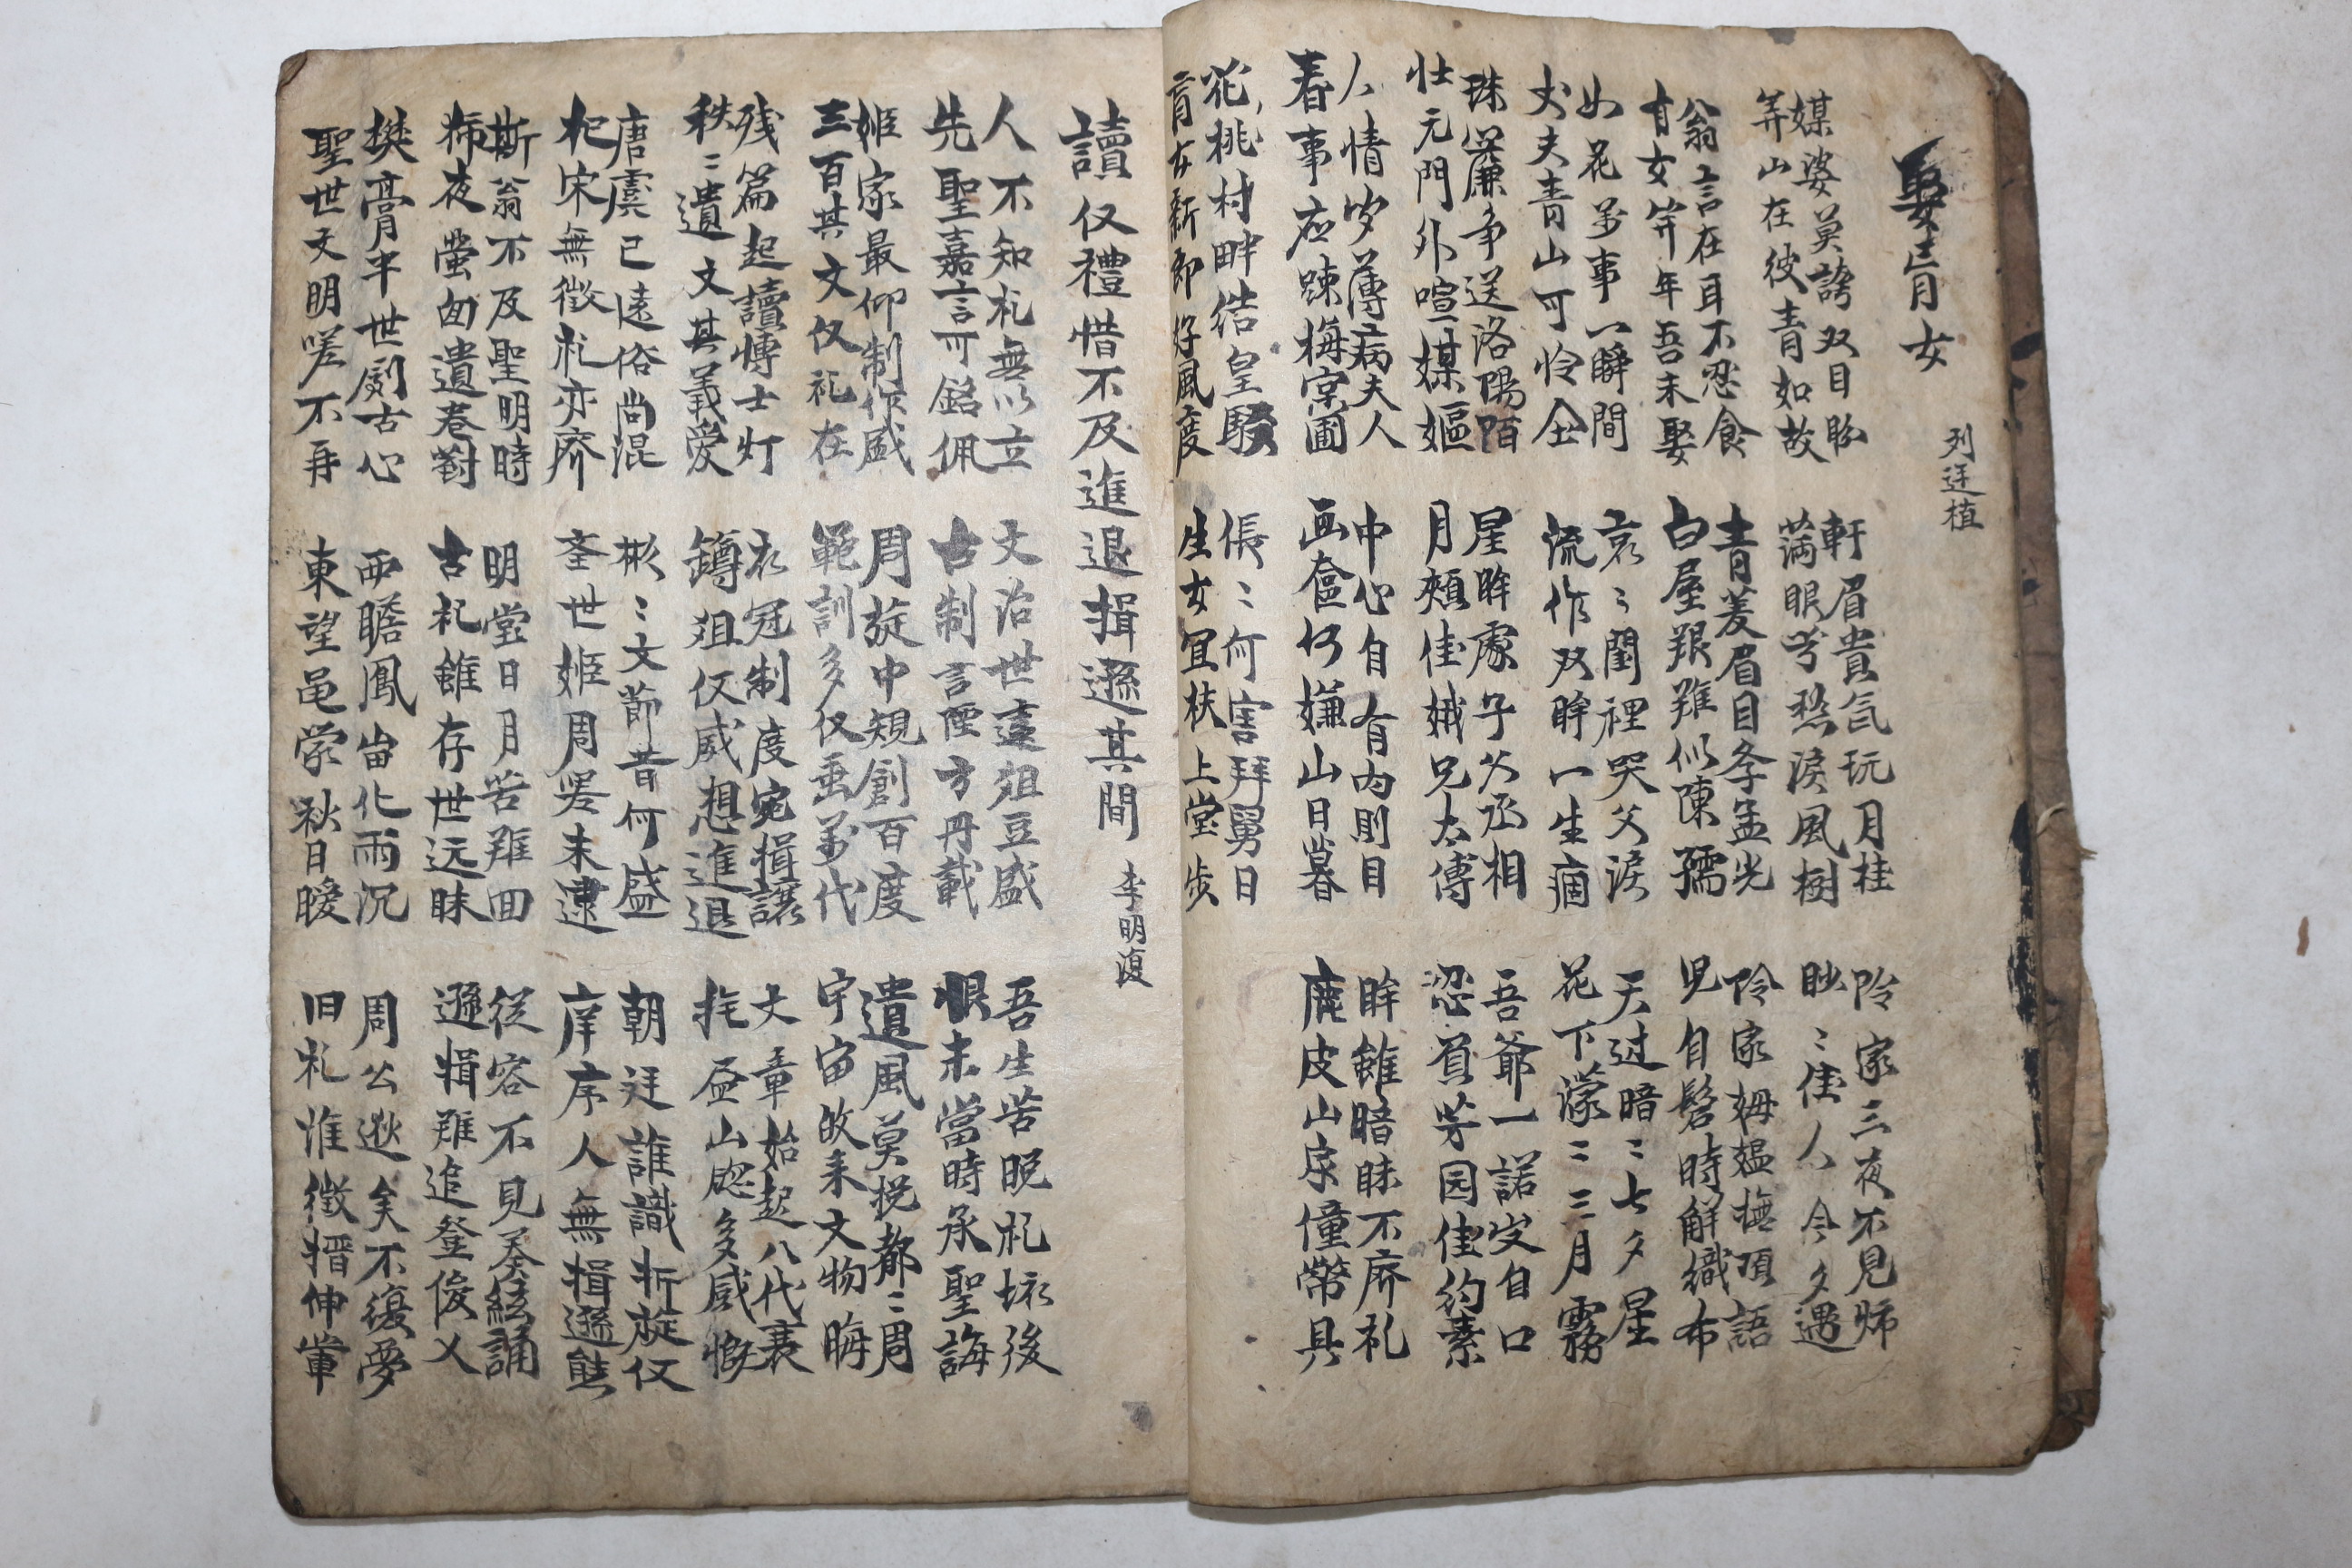 娶盲女
列廷植
媒婆莫誇双目盼
笄山在彼青如故
軒眉貴氣玩月桂
滿眼兮愁淚風樹
怜家三夜不見師
眇〻佳人今夕遇
翁言在耳不忍食
盲女笄年吾未娶
青菱眉目李孟光
白屋艱難似陳孺
怜家姆媼撫頂語
児自髫時解織布
如花萬事一瞬間
丈夫青山可怜仝
哀〻閨裡哭父淚
流作双眸一生痼
天过暗〻七夕星
花下濛〻三月霧
珠簾争送洛陽陌
壮元門外喧媒嫗
星眸處子父丞相
月頰佳娥兄太傅
吾爺一諾出自口
恐負芳园佳約素
人情岁薄病夫人
春事应踈梅窓圃
中心自有內則目
画奩何嫌山日暮
眸雖暗昧不廃礼
鹿皮山家僮幣具
花桃村畔结皇騣
盲女新郎好風度
倀〻何害拜舅日
生女宜扶上堂步
讀仪禮惜不及進退揖遜其間
李明復
人不知礼無以立
先聖嘉言可銘佩
文治世遠俎豆盛
古制言堙方冊載
吾生苦晚礼坏後
恨未當時承聖誨
姬家最仰制作盛
三百其文仪礼在
周旋中規創百度
範訓多仪垂萬代
遺風莫挽都〻周
宇宙攸来文物晦
残篇起讀博士灯
秩〻遺文其義愛
衣冠制度宛揖讓
鐏俎仪威想進退
文章始起八代衰
拖盃山䆫多感慨
唐虞已遠俗尚混
杞宋無徵礼亦廃
彬〻文節昔何盛
奎世姬周嗟未逮
朝廷誰識折旋仪
庠序人無揖遜態
斯翁不及聖明時
㾕夜螢囱遺卷對
明堂日月苦難回
古礼雖存世远昧
從容不見奏絃誦
遜揖難追登俊乂
樊膏半世劇古心
聖世文明嗟不再
西瞻鳳宙化雨沉
東望黽蒙秋日曖
周公逖矣不復夢
旧礼惟徵搢伸輩